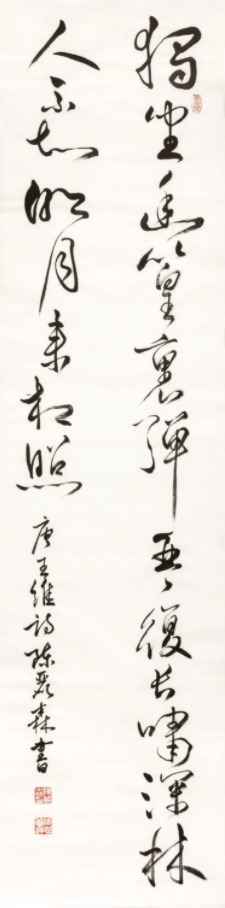 獨坐幽篁裏彈琴復長嘯深林
人不知明月來相照
唐王維詩陳森書